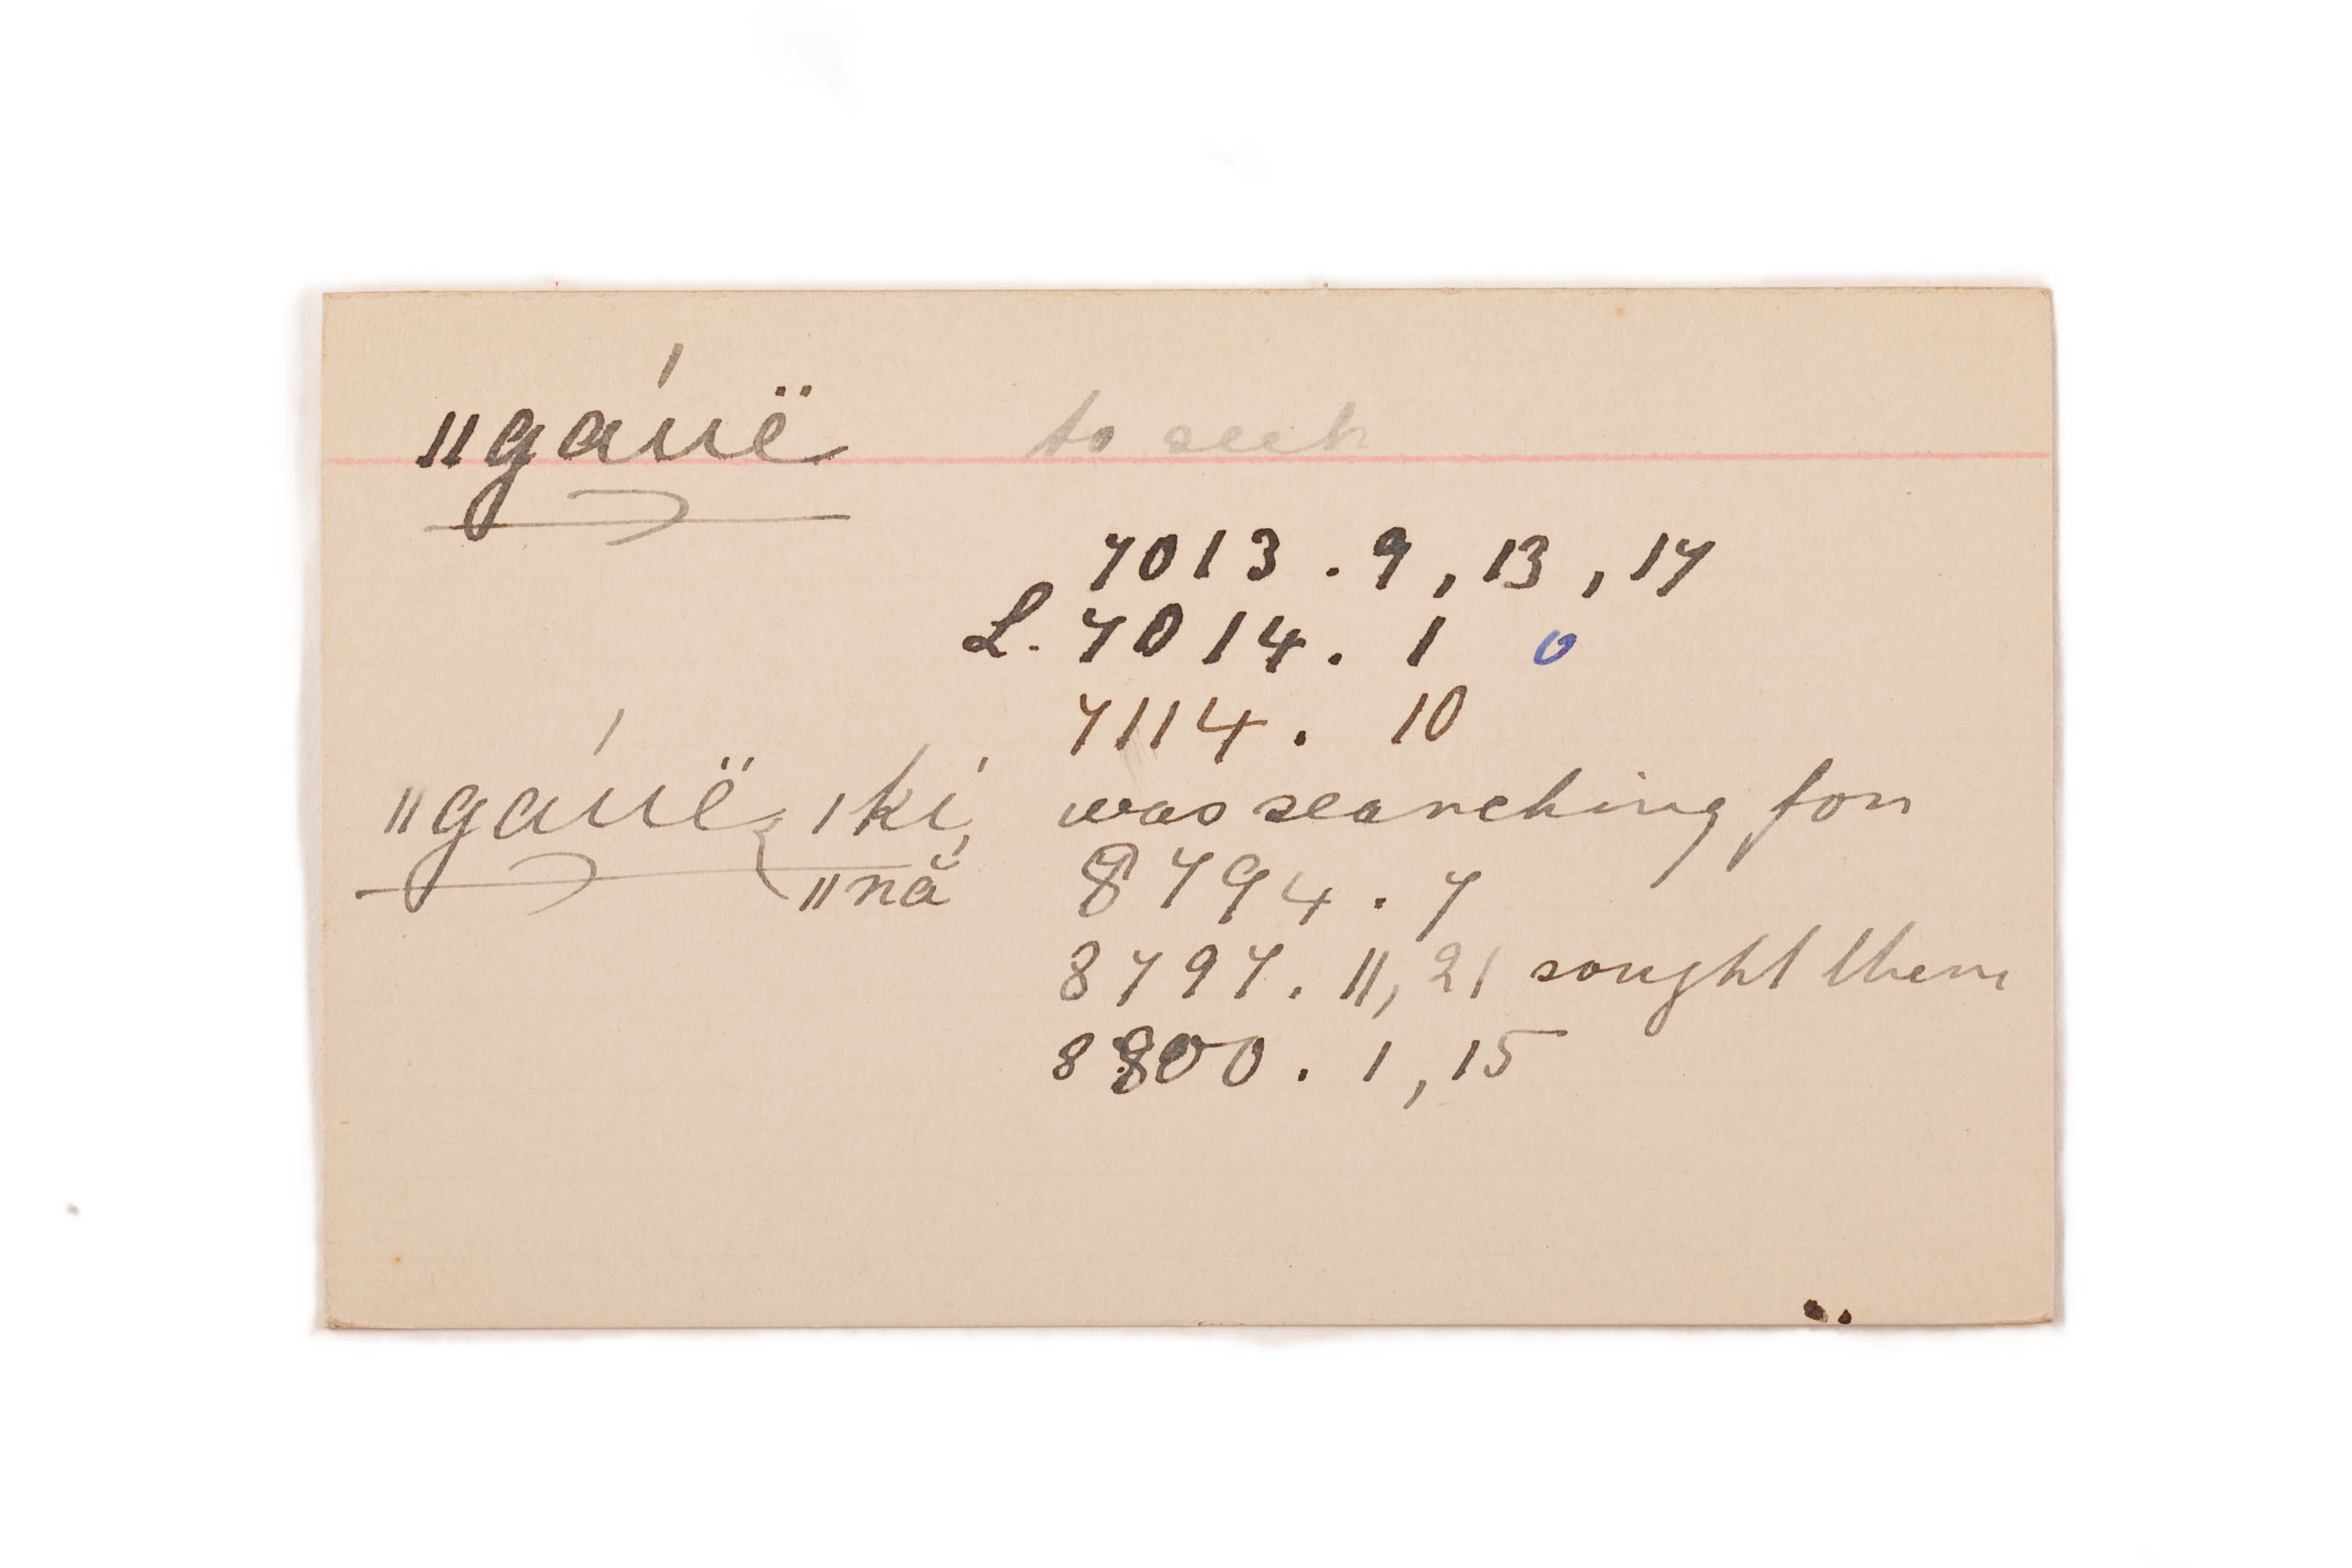 ǁgáuë to seek
7013 . 9, 13, 17
L. 7014 . 1 0
7114 . 10
ǁgáuë ǀki, was searching for
ǁnă 8794 . 7
8797 . 11, 21 sought them
8800 . 1, 15